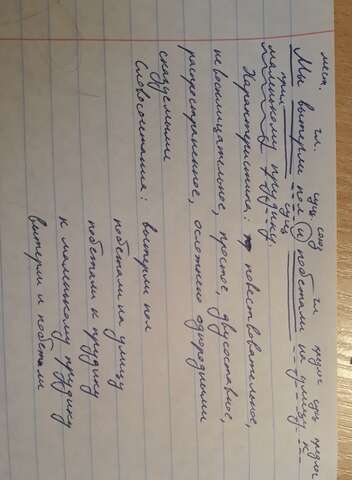 мест. гл. сущ союз гл. предлог сущ предлог
Мы вытерли пол и побежали на улицу к
прил сущ
маленькому прудику.
Характеристика: повествовательное,
невосклицательное, простое, двусоставное,
распространенное, осложнено однородными
сказуемыми
Словосочетания: вытерли пол
побежали на улицу
побежали к прудику
к маленькому прудику
вытерли и побежали